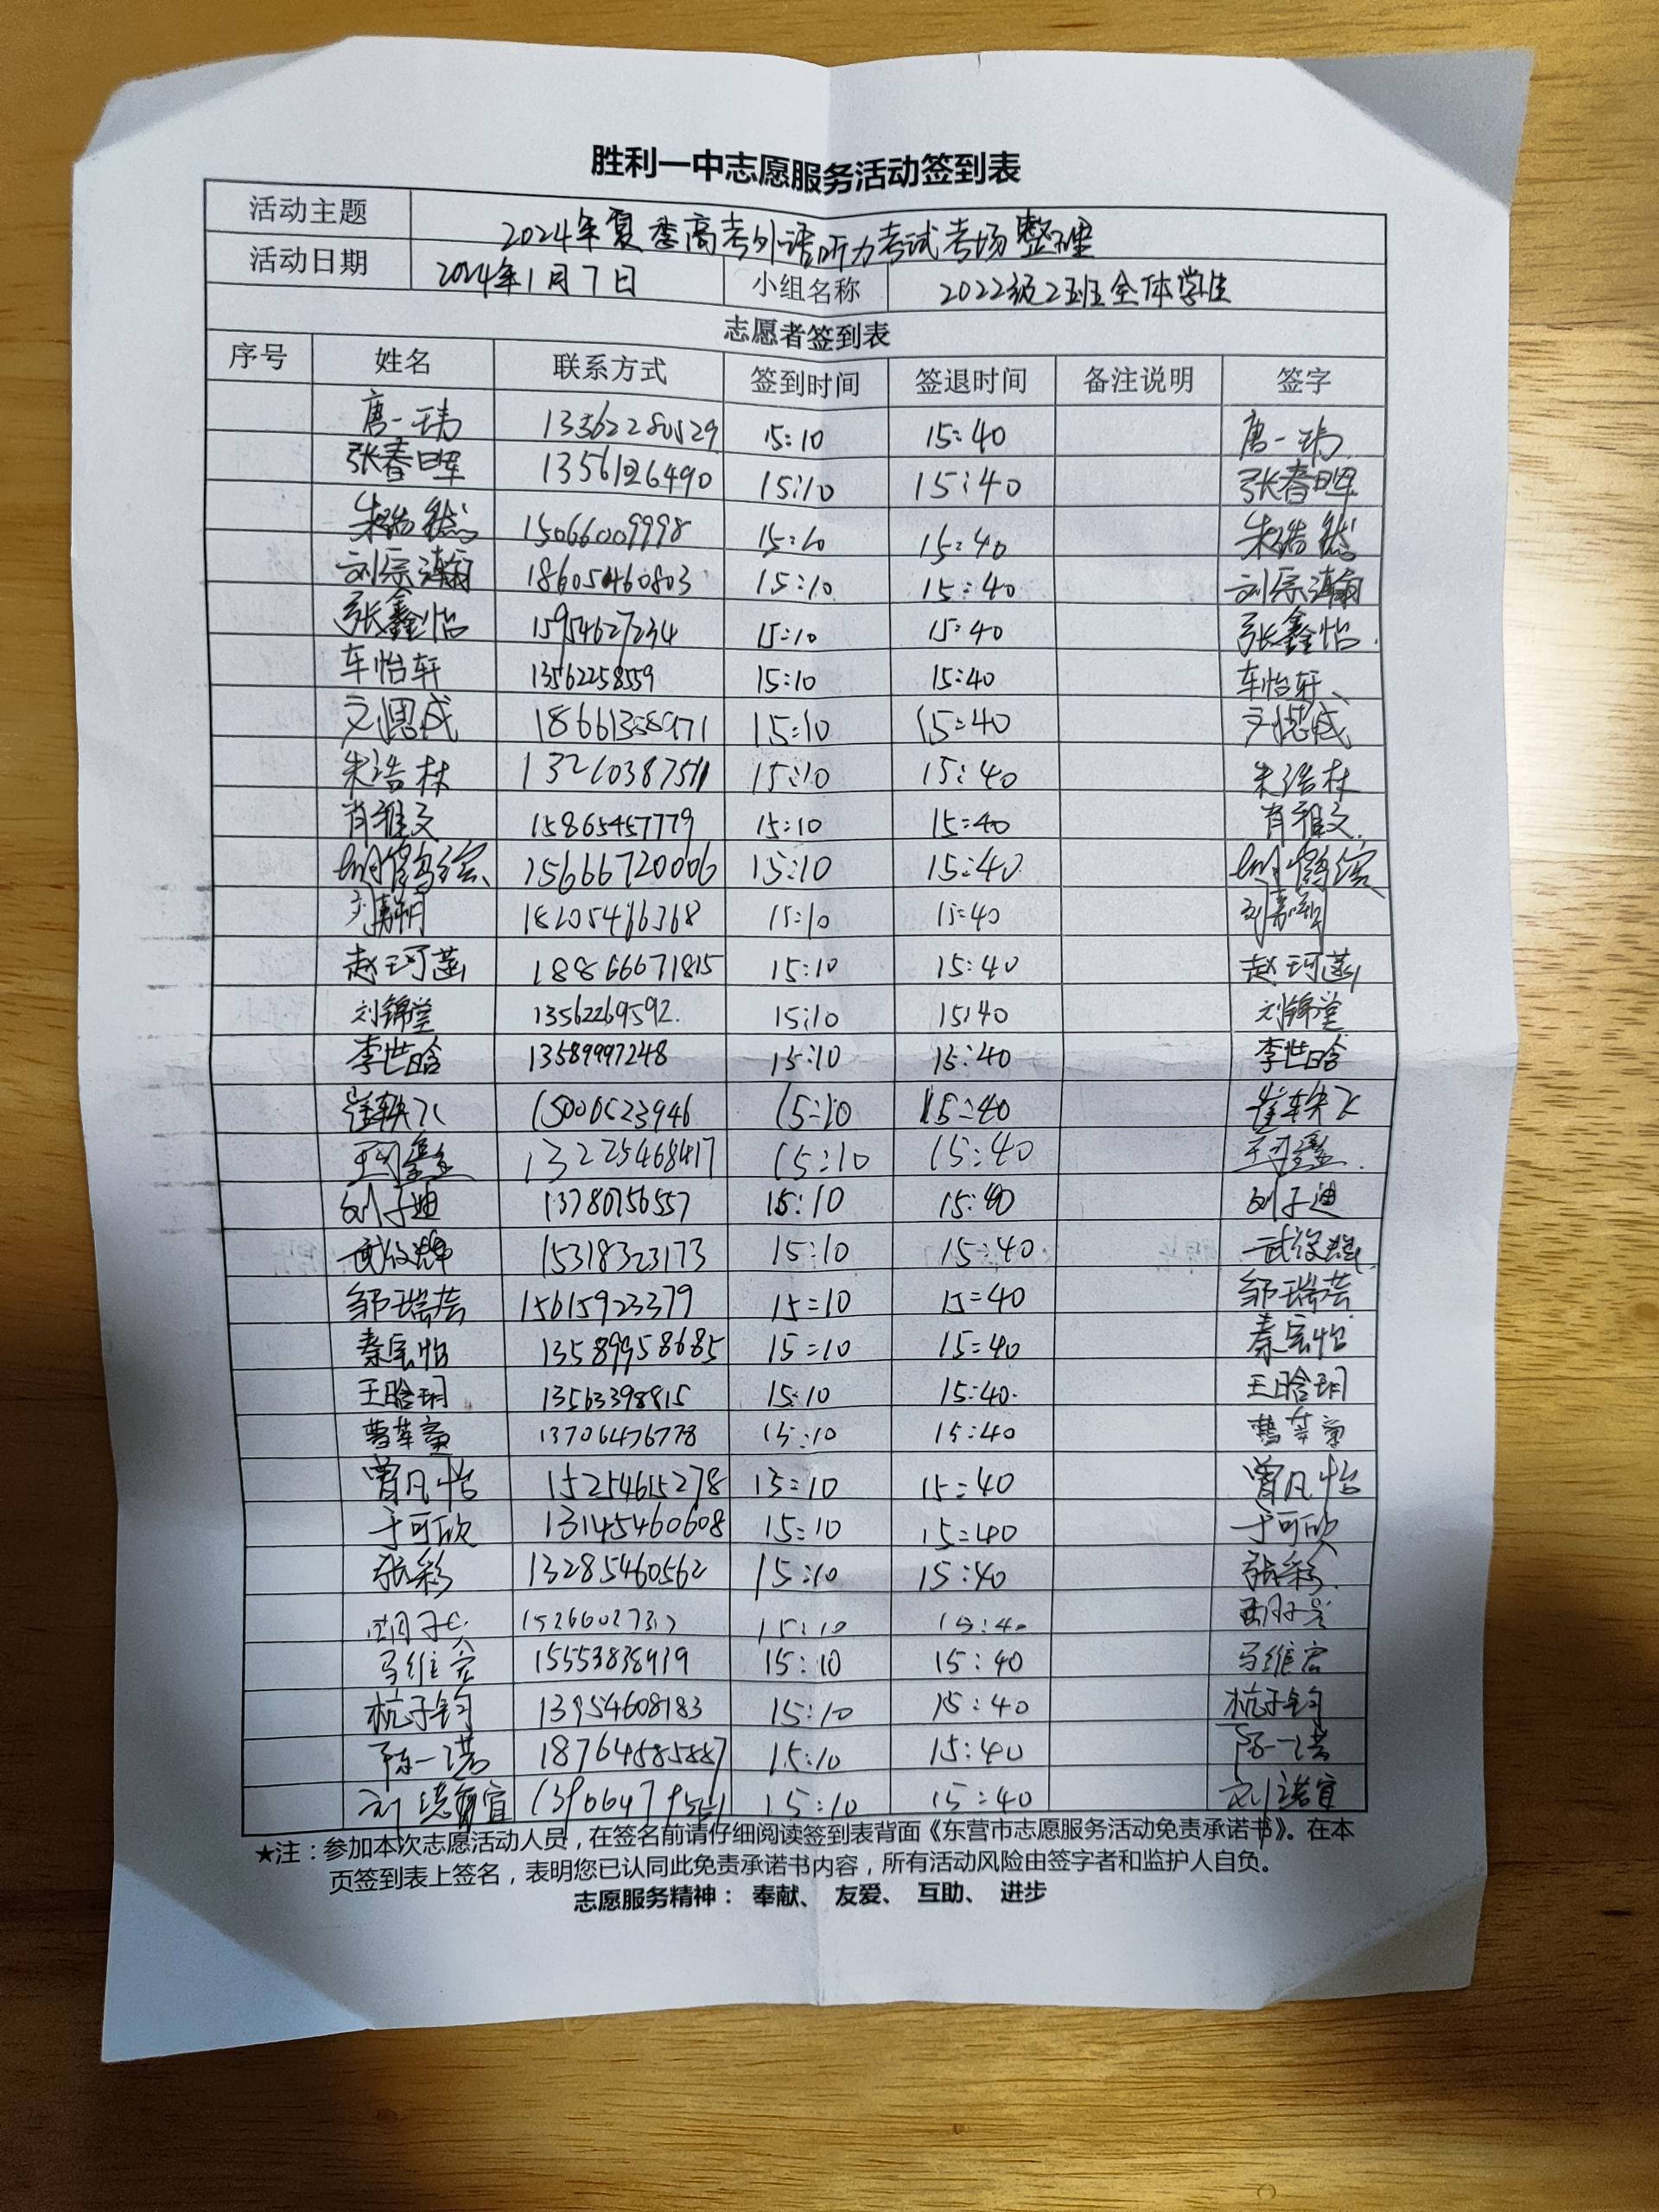 胜利一中志愿服务活动签到表
活动主题 2024年夏季高考外语听力考试考场整理
活动日期 2024年1月7日 小组名称 2022级2班全体学生
志愿者签到表
序号 姓名 联系方式 签到时间 签退时间 备注说明 签字
唐一玮 15:10 15:40 唐一玮
张春晖 15:10 15:40 张春晖
朱浩然 15066009998 15:10 15:40 朱浩然
刘宗瀚 18605460803 15:10 15:40 刘宗瀚
张鑫怡 15954627234 15:10 15:40 张鑫怡.
车怡轩 13562258559 15:10 15:40 车怡轩
15:10 15:40
朱浩林 15:10 15:40 朱浩林
肖雅文 15865457779 15:10 15:40 肖雅文.
15666720006 15:10 15:40
15:10 15:40
赵珂菡 18866671815 15:10 15:40 赵珂菡
刘锦莹 13562269592. 15:10 15:40 刘锦莹
李世晗 13589997248 15:10 15:40 李世晗
崔轶飞 15:10 15:40 崔轶飞
13225468417 15:10 15:40
刘子迪 15:10 15:40 刘子迪
15318323173 15:10 15:40
邹瑞芸 15615923379 15:10 15:40 邹瑞芸
秦宝怡 13589958685 15:10 15:40 秦宝怡
王晗玥 13563398815 15:10 15:40. 王晗玥
13706476778 15:10 15:40
曾凡怡 15254615278 15:10 15:40 曾凡怡
于可欣 13145460608 15:10 15:40 于可欣
张彩 13285460562 15:10 15:40 张彩.
15:10 15:40
马维宏 15:10 15:40 马维宏
杭子钧 13954608183 15:10 15:40 杭子钧
陈一诺 18764585887 15:10 15:40 陈一诺
15:10 15:40 刘诺宜
★注：参加本次志愿活动人员，在签名前请仔细阅读签到表背面《东营市志愿服务活动免责承诺书》。在本
页签到表上签名，表明您已认同此免责承诺书内容，所有活动风险由签字者和监护人自负。
志愿服务精神： 奉献、 友爱、 互助、 进步